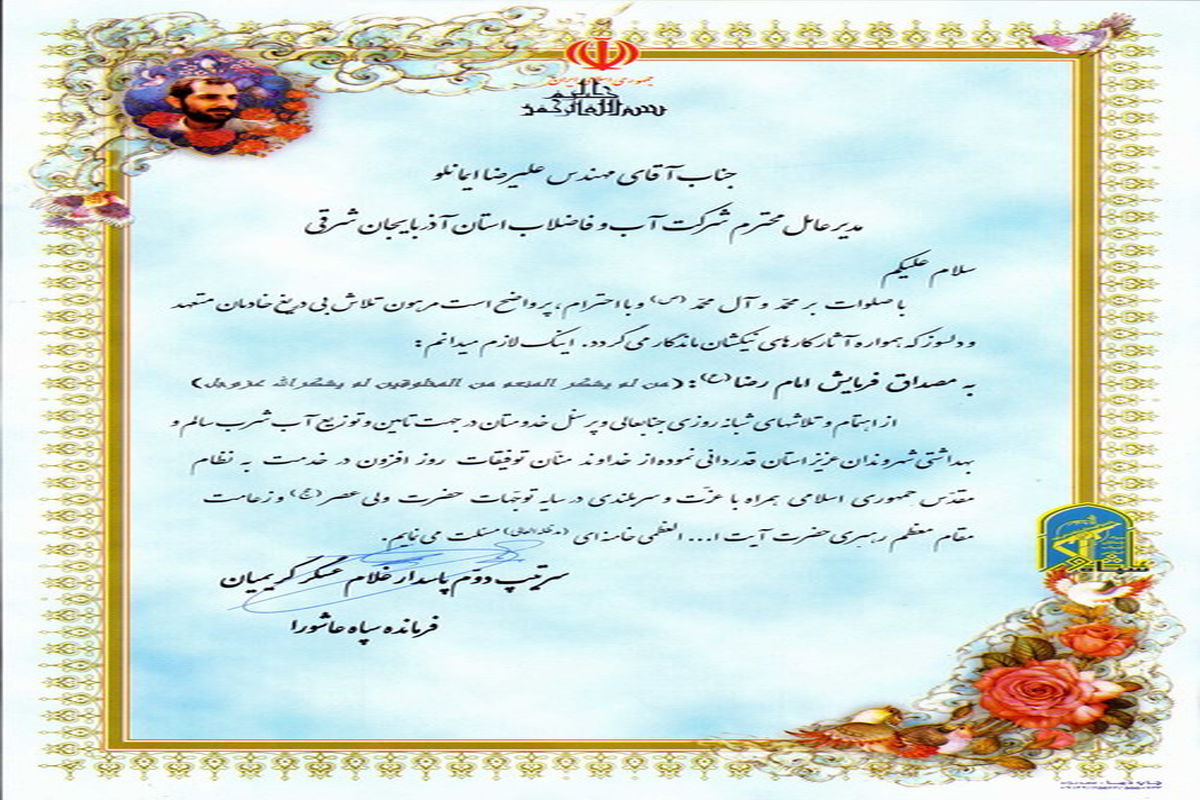 جمهوری اسلامی ایران
بسم الله الرحمن الرحیم
جناب آقای مهندس علیرضا ایمانلو
مدیر عامل محترم شرکت آب و فاضلاب استان آذربایجان شرقی
سلام علیکم
با صلوات بر محمّد و آل محمّد (س) و با احترام، پر واضح است مرهون تلاش بی دریغ خادمان متعهد
و دلسوز که همواره آثار کارهای نیکشان ماندگار می گردد. اینک لازم میدانم:
به مصداق فرمایش امام رضا (ع): (من لم یشکر المنعم من المخلوقین لم یشکر الله عزوجل)
از اهتمام و تلاشهای شبانه روزی جنابعالی و پرسنل خدومتان در جهت تامین و توزیع آب شرب سالم و
بهداشتی شهروندان عزیز استان قدردانی نموده از خداوند منّان توفیقات روز افزون در خدمت به نظام
مقدّس جمهوری اسلامی همراه با عزّت و سربلندی در سایه توجّهات حضرت ولی عصر (عج) و زعامت
مقام معظم رهبری حضرت آیت ا... العظمی خامنه ای (مد ظله العالی) مسئلت می نمایم.
سرتیپ دوّم پاسدار غلام عسکر کریمیان
فرمانده سپاه عاشورا
سپاه